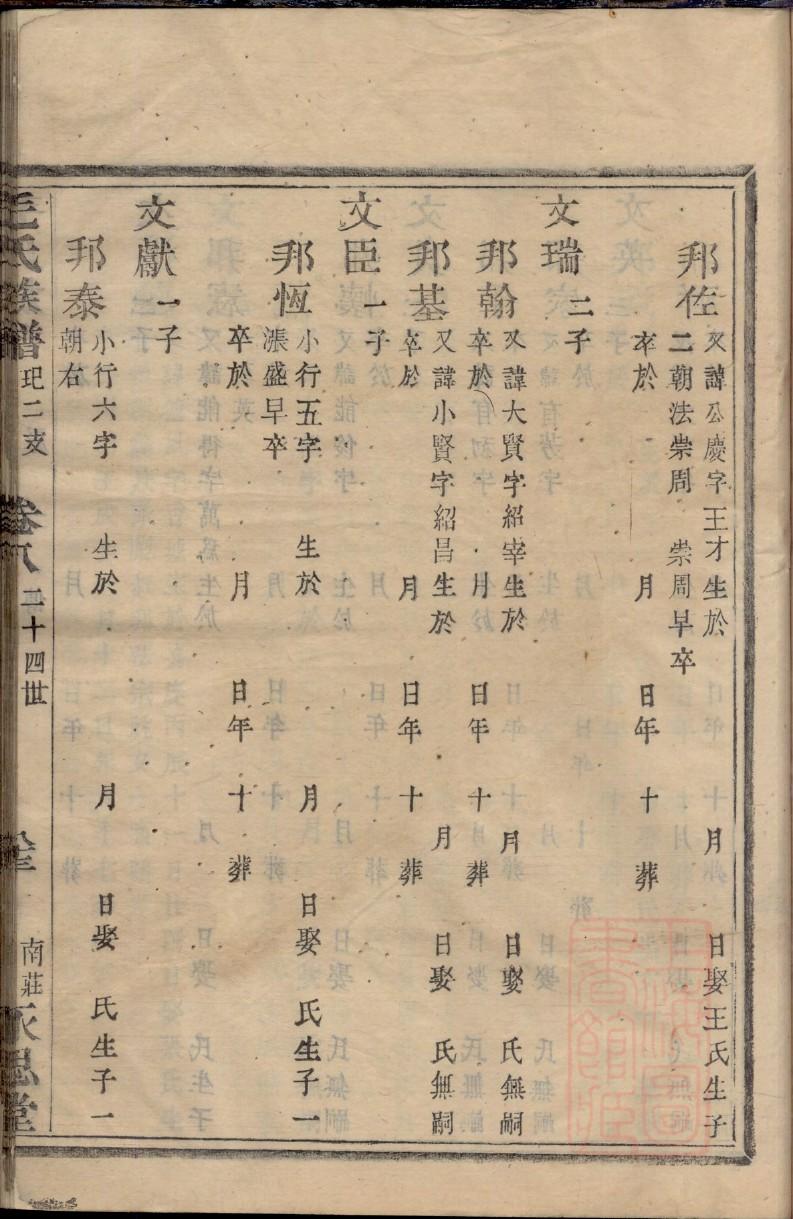 邦佐 又諱公慶字王才生於 月 日娶王氏生子
二朝法崇周 崇周早卒
卒於 月 日年 十 葬
文瑞 二子
邦翰 又諱大賢字紹宰生於 月 日娶 氏無嗣
卒於 月 日年 十 葬
邦基 又諱小賢字紹昌生於 月 日娶 氏無嗣
卒於 月 日年 十 葬
文臣 一子
邦恆 小行五字 生於 月 日娶 氏生子一
漲盛早卒
卒於 月 日年 十 葬
文獻 一子
邦泰 小行六字 生於 月 日娶 氏生子一
朝右
毛氏族譜 玘二支 卷八 二十四世 南莊 永思堂